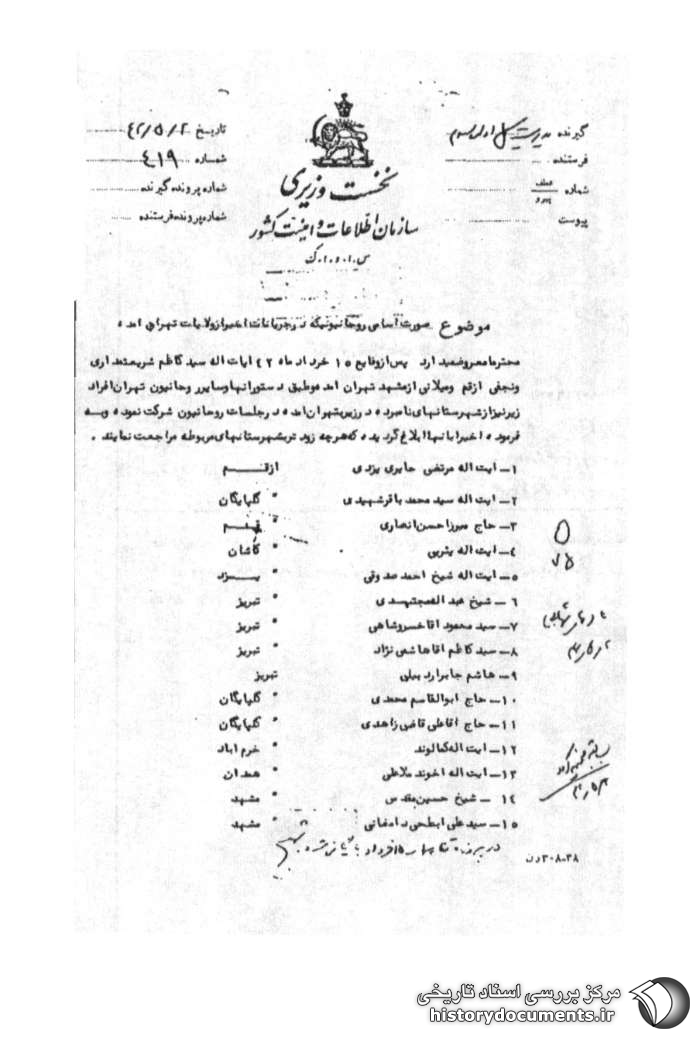 گیرنده مدیریت کل اداره سوم
تاریخ ۴۲/۵/۲
فرستنده
شماره ۴۱۹
شماره عطف پیرو
شماره پرونده گیرنده
پیوست
شماره پرونده فرستنده
نخست وزیری
سازمان اطلاعات و امنیت کشور
س.ا.و.ا.ک
موضوع صورت اسامی روحانیونیکه در جریانات اخیر از ولایات تهران آمده
محترما معروضمیدارد پس از وقایع ۱۵ خرداد ماه ۴۲ آیات اله سید کاظم شریعتمداری
و نجفی از قم و میلانی از مشهد تهران آمده و طبق دستور آنها و سایر روحانیون تهران افراد
زیر نیز از شهرستانهای نامبرده در زیر بتهران آمده در جلسات روحانیون شرکت نموده و به
فرموده اخیرا بانها ابلاغ گردیده که هر چه زودتر بشهرستانهای مربوطه مراجعت نمایند .
۱ــ آیت اله مرتضی حایری یزدی از قم
۲ــ آیت اله سید محمد باقر شهیدی " گلپایگان
۳ــ حاج میرزا حسن انصاری " قم
۴ــ آیت اله یثربی " کاشان
۵ــ آیت اله شیخ احمد صدوقی " یزد
۶ ــ شیخ عبداله مجتهدی " تبریز
۷ــ سید محمود آقا خسروشاهی " تبریز
۸ــ سید کاظم آقا هاشمی نژاد " تبریز
۹ــ هاشم جابر اردبیلی تبریز
۱۰ــ حاج ابوالقاسم محمدی " گلپایگان
۱۱ــ حاج آقا علی قاضی زاهدی " گلپایگان
۱۲ــ آیت اله کمالوند " خرم آباد
۱۳ــ آیت اله آخوند ملاعلی " همدان
۱۴ ــ شیخ حسین مقدس " مشهد
۱۵ــ سید علی ابطحی دامغانی " مشهد
در پرونده
۱۵ خرداد
بایگانی شود
۳۰۸-۳۸ دن
مرکز بررسی اسناد تاریخی
historydocuments.ir